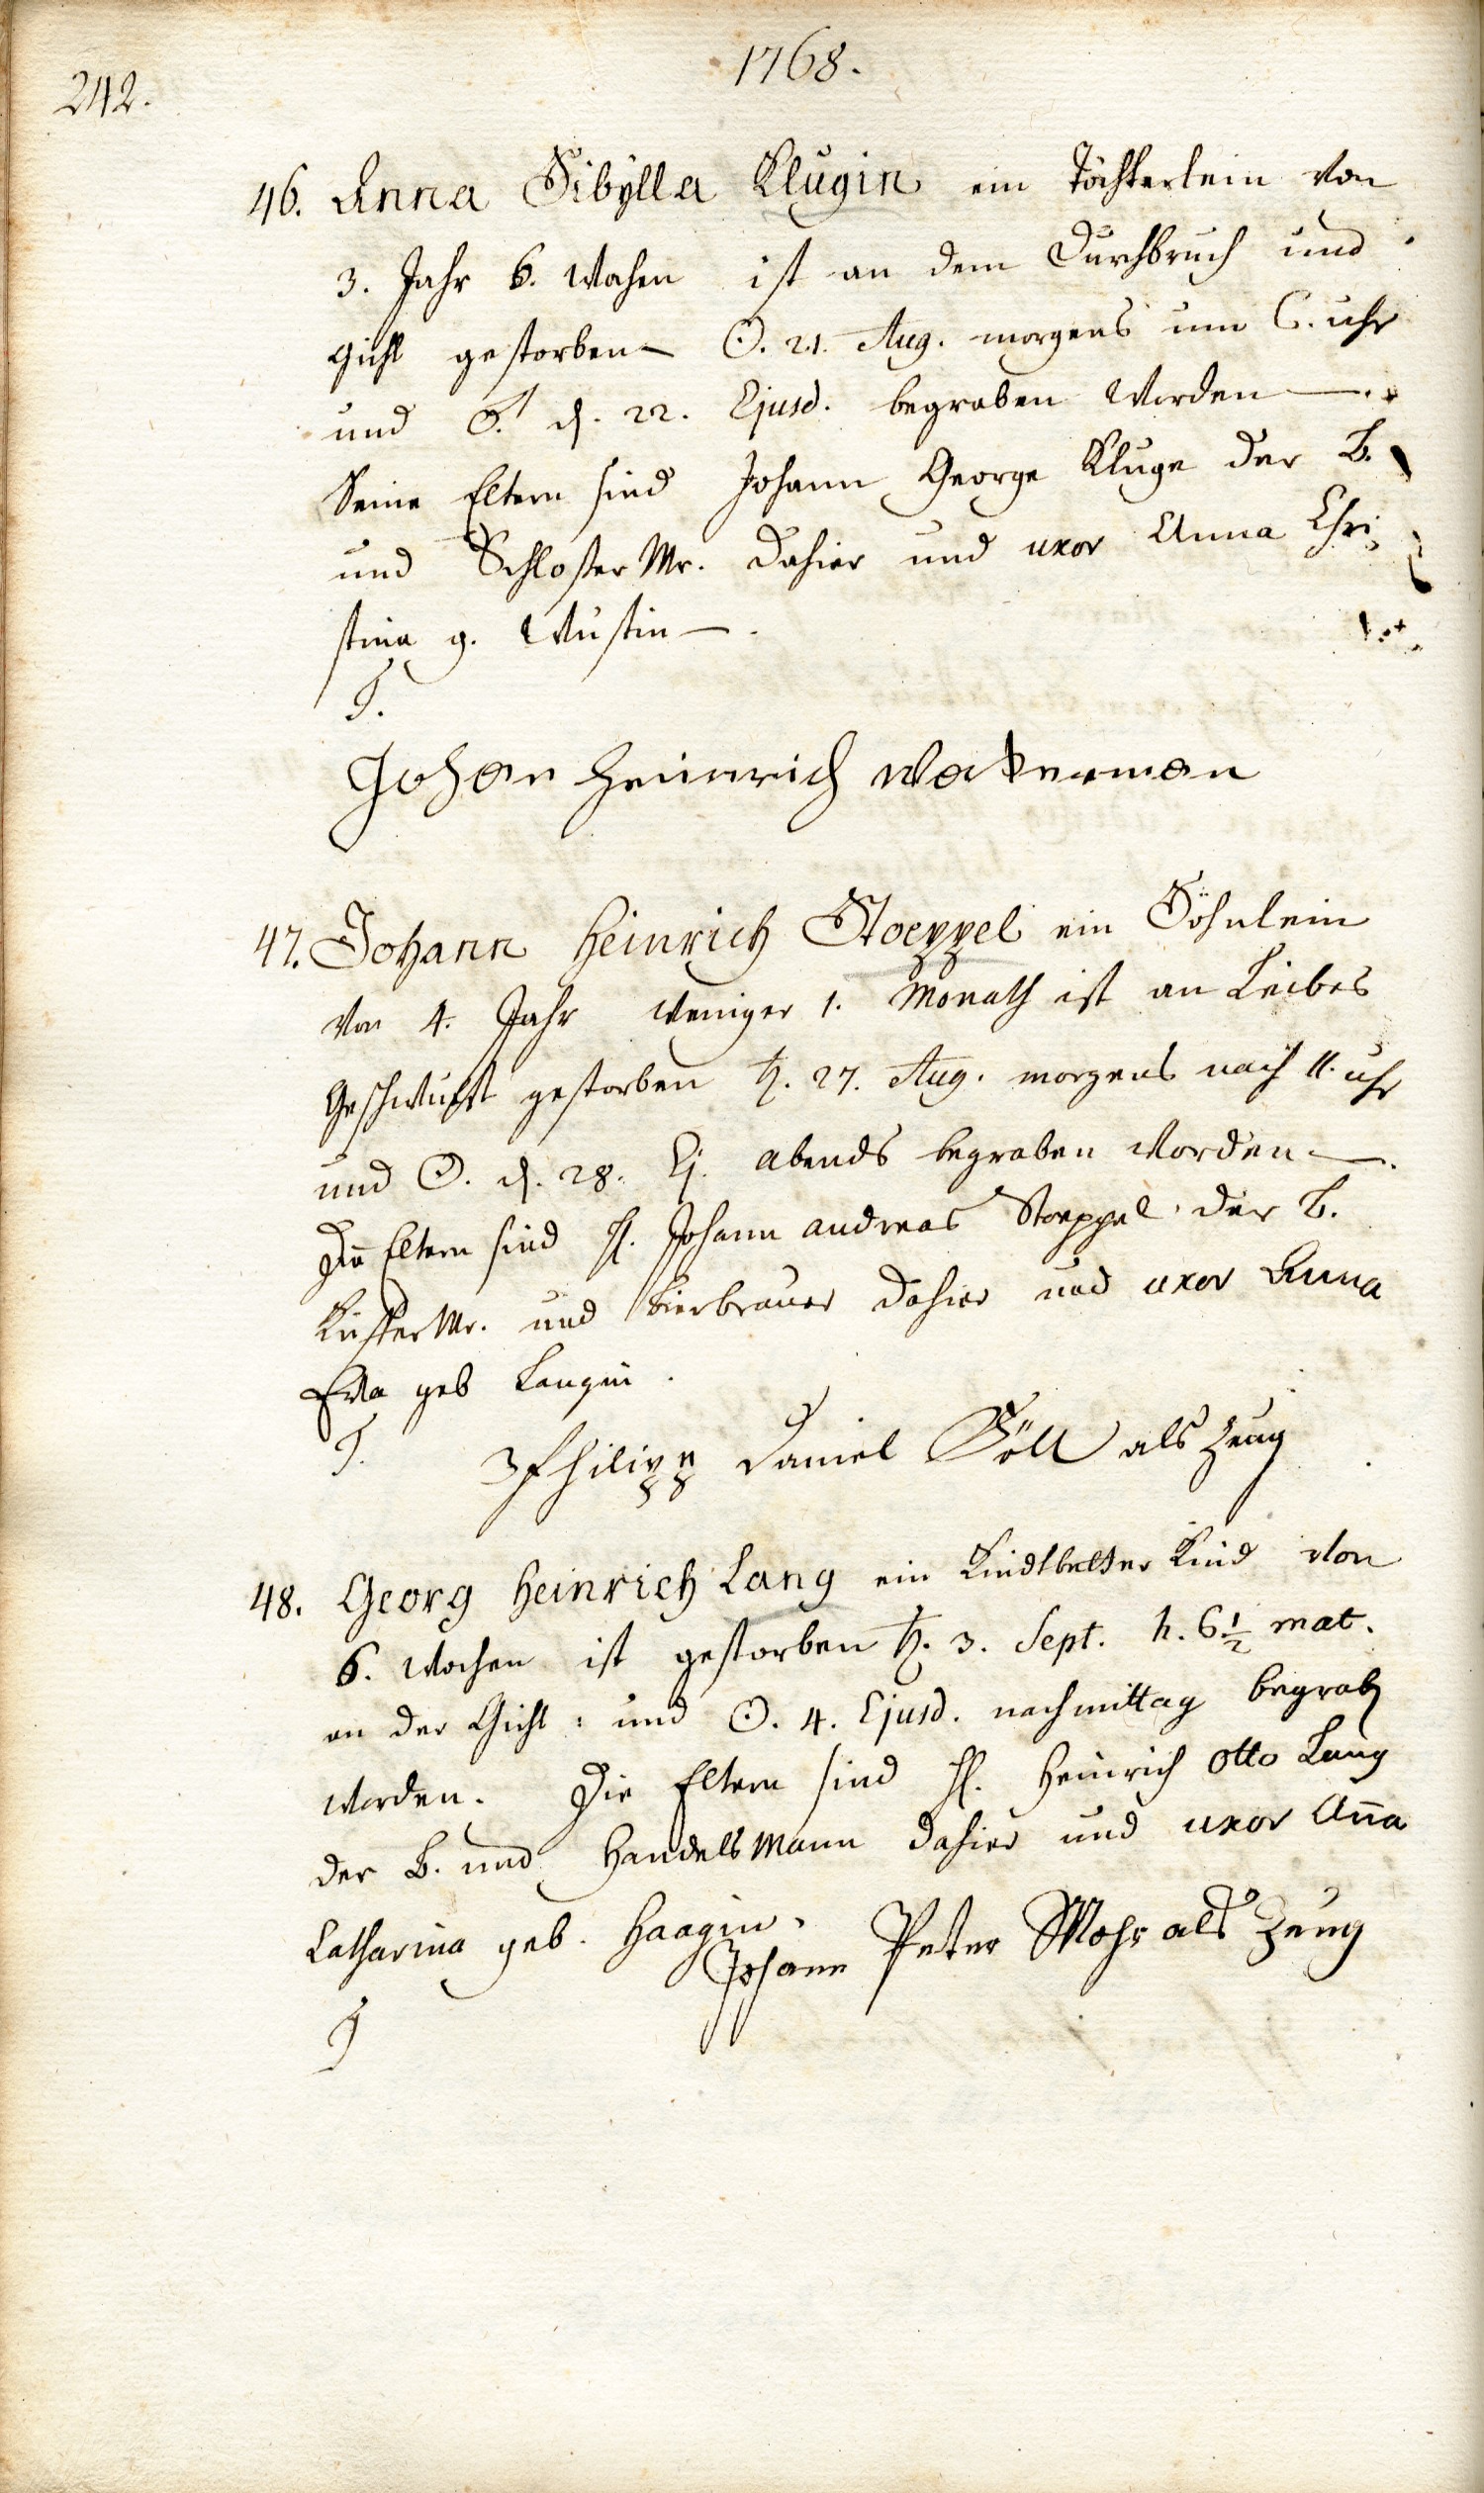 1768.
242.
46. Anna Sibÿlla Klugin ein Töchterlein von
3. Jahr 6. Wochen ist an dem Durchbruch und
Gicht gestorben – ☉. 21. Aug. morgens um 6. uhr
und d. 22. Ejusd. begraben worden –.
Seine Eltern sind Johann George Kluge der B.
und Schloßer Mr. dahier und uxor Anna Chri-
stina g. Wustin –.
T.
Johan Heinrich Wakerman
47. Johann Heinrich Stoeppel ein Söhnlein
von 4. Jahr weniger 1. Monath ist an Leibes
Geschwulst gestorben ♄. 27. Aug. morgens nach 11. uhr
und ☉. d. 28. Ej. abends begraben worden –.
Die Eltern sind H. Johann Andreas Stoeppel der B.
Kiefer Mr. und Bierbrauer dahier und uxor Anna
Eva geb Langin.
T. Philipp Daniel Böll als Zeug
48. Georg Heinrich Lang ein Kindtbetter Kind von
6. Wochen ist gestorben ♄. 3. Sept. h. 6 1/2 mat.
an der Gicht: und ☉. 4. Ejusd. nachmittag begrab
worden. Die Eltern sind H. Heinrich Otto Lang
der B. und HandelsMann dahier und uxor Aña
Catharina geb. Haagin.
Johann Peter Mohr als Zeug
T